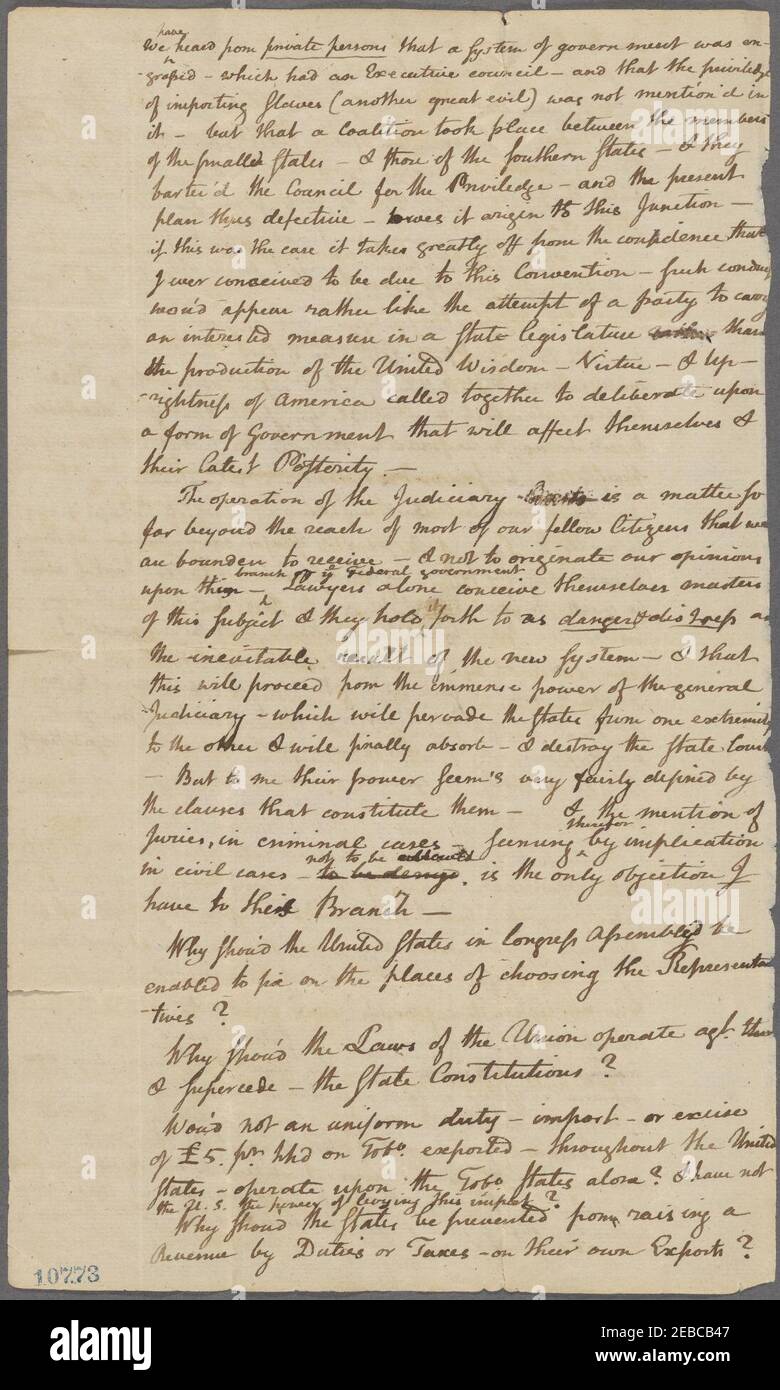 have
We heard from private persons that a System of government was en-
-grossed - which had an Executive council - and that the priviledge
of importing Slaves (another great evil) was not mention'd in
it - but that a Coalition took place between the members
of the Smaller States - & those of the Southern States - & they
barter'd the Council for the Priviledge - and the present
plan thus defective - owes it origin to this Junction -
if this was the case it takes greatly off from the confidence that
I ever conceived to be due to this Convention - such conduct
wou'd appear rather like the attempt of a party to carry
an interested measure in a State legislature than
the production of the United Wisdom - Virtue - & Up-
-rightness of America called together to deliberate upon
a form of Government that will affect themselves &
their latest Posterity. -
The operation of the Judiciary is a matter so
far beyond the reach of most of our fellow Citizens that we
are bounden to receive - & not to originate our opinions
branch of ye Federal government
upon this - Lawyers alone conceive themselves masters
of this Subject & they hold it forth to us danger & distress as
the inevitable result of the new System - & that
this will proceed from the immense power of the general
Judiciary - which will pervade the States from one extremity
to the other & will finally absorb - & destroy the State Courts
- But to me their power seem's very fairly defined by
the clauses that constitute them - & the mention of
therefor
Juries, in criminal cases - seeming by implication
not to be allowed
in civil cases - to be denyd. is the only objection I
have to this Branch -
Why shou'd the United States in Congress Assembled be
enabled to fix on the places of choosing the Representa
-tives ?
Why shou'd the Laws of the Union operate agt. them
& supercede - the State Constitutions ?
Wou'd not an uniform duty - impost - or excise
of £5. pr. hhd on Tobo. exported - throughout the United
States - operate upon the Tobo. States alone ? & have not
the U. S. the power of levying this impost ?
Why shou'd the States be prevented from raising a
Revenue by Duties or Taxes - on their own Exports ?
10773
alamy
Image ID: 2EBCB47
www.alamy.com